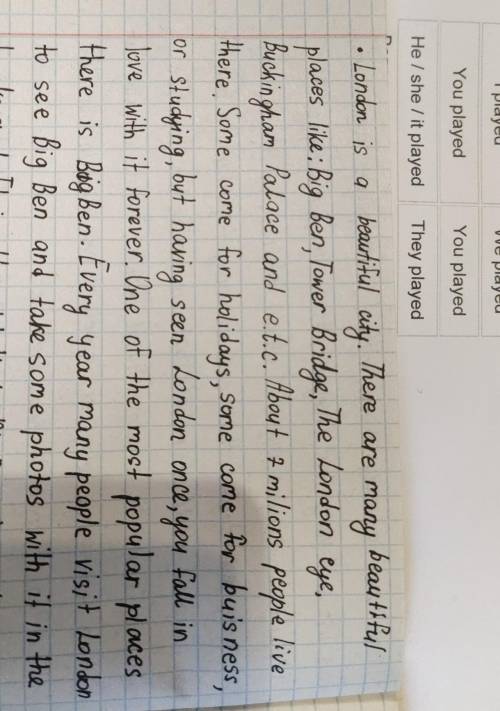 I played
We played
You played
You played
He / she / it played
They played
• London is a beautiful city. There are many beautiful
places like: Big Ben, Tower Bridge, The London eye,
Buckingham Palace and e.t.c. About 7 milions people live
there. Some come for holidays, some come for buisness,
or studying, but having seen London once, you fall in
love with it forever. One of the most popular places
there is Big Ben. Every year many people visit London
to see Big Ben and take some photos with it in the